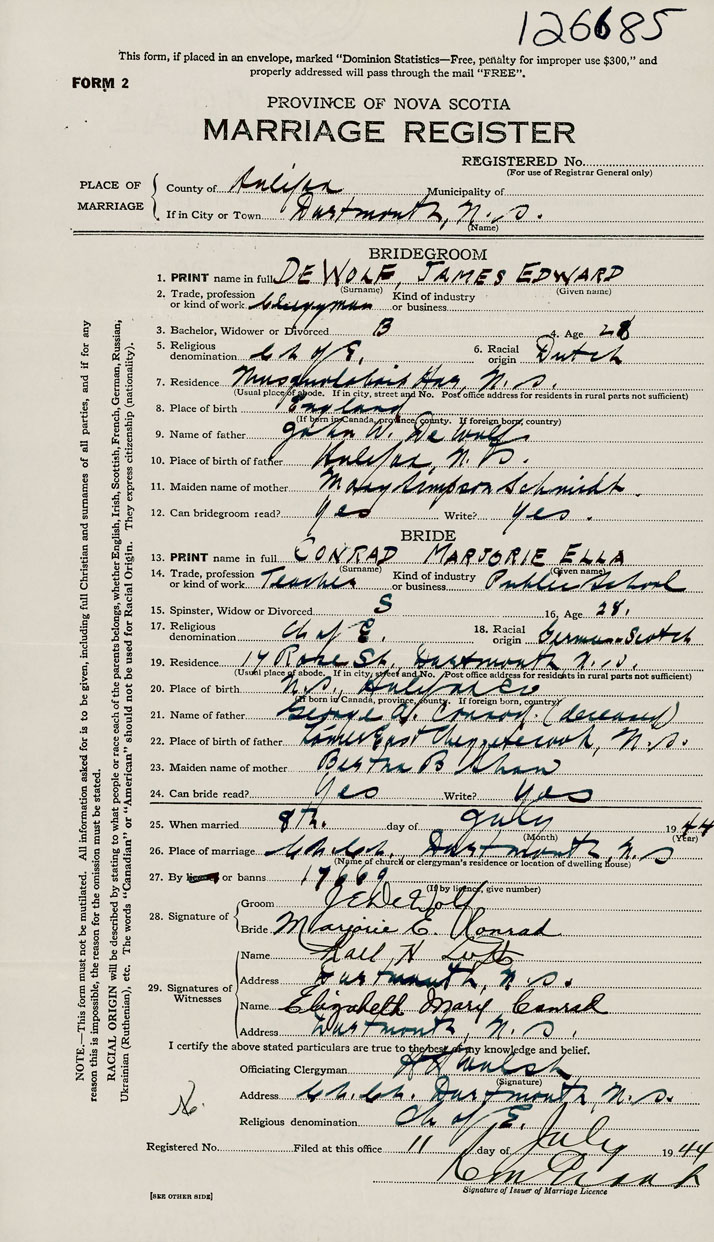 126685
This form, if placed in an envelope, marked "Dominion Statistics—Free, penalty for improper use $300," and
properly addressed will pass through the mail "FREE".
FORM 2
PROVINCE OF NOVA SCOTIA
MARRIAGE REGISTER
REGISTERED No.
(For use of Registrar General only)
PLACE OF MARRIAGE
County of Halifax Municipality of
If in City or Town Dartmouth, N. S.
(Name)
BRIDEGROOM
1. PRINT name in full DE WOLF, JAMES EDWARD
(Surname) (Given name)
2. Trade, profession or kind of work Clergyman Kind of industry or business
3. Bachelor, Widower or Divorced B 4. Age 28
5. Religious denomination Ch of E. 6. Racial origin Dutch
7. Residence Musquodoboit Har, N. S.
(Usual place of abode. If in city, street and No. Post office address for residents in rural parts not sufficient)
8. Place of birth England
(If born in Canada, province, county. If foreign born, country)
9. Name of father John W. De Wolf
10. Place of birth of father Halifax, N. S.
11. Maiden name of mother Mary Simpson Schmidt.
12. Can bridegroom read? yes Write? yes.
BRIDE
13. PRINT name in full CONRAD MARJORIE ELLA
(Surname) (Given name)
14. Trade, profession or kind of work Teacher Kind of industry or business Public School
15. Spinster, Widow or Divorced S 16. Age 28.
17. Religious denomination Ch of E. 18. Racial origin German-Scotch
19. Residence 17 Rose St., Dartmouth N. S.
(Usual place of abode. If in city, street and No. Post office address for residents in rural parts not sufficient)
20. Place of birth N.S., Halifax Co
(If born in Canada, province, county. If foreign born, country)
21. Name of father George Conrod. (deceased)
22. Place of birth of father Lower East Chezzetcook, N. S.
23. Maiden name of mother Bertha B Shaw
24. Can bride read? yes Write? yes
25. When married 8th. day of July 1944
(Month) (Year)
26. Place of marriage Ch. Ch., Dartmouth, N. S
(Name of church or clergyman's residence or location of dwelling house)
27. By or banns 17669
(If by licence, give number)
28. Signature of
Groom J E DeWolf
Bride Marjorie E. Conrad
29. Signatures of Witnesses
Name H
Address Dartmouth, N. S.
Name Elizabeth Mary Conrad
Address Dartmouth, N. S.
I certify the above stated particulars are true to the best of my knowledge and belief.
Officiating Clergyman Walsh
(Signature)
Address Ch. Ch. Dartmouth, N. S.
Religious denomination Ch of E.
Registered No. Filed at this office 11 day of July 1944
Signature of Issuer of Marriage Licence
[SEE OTHER SIDE]
NOTE.—This form must not be mutilated. All information asked for is to be given, including full Christian and surnames of all parties, and if for any
reason this is impossible, the reason for the omission must be stated.
RACIAL ORIGIN will be described by stating to what people or race each of the parents belongs, whether English, Irish, Scottish, French, German, Russian,
Ukrainian (Ruthenian), etc. The words "Canadian" or "American" should not be used for Racial Origin. They express citizenship (nationality).